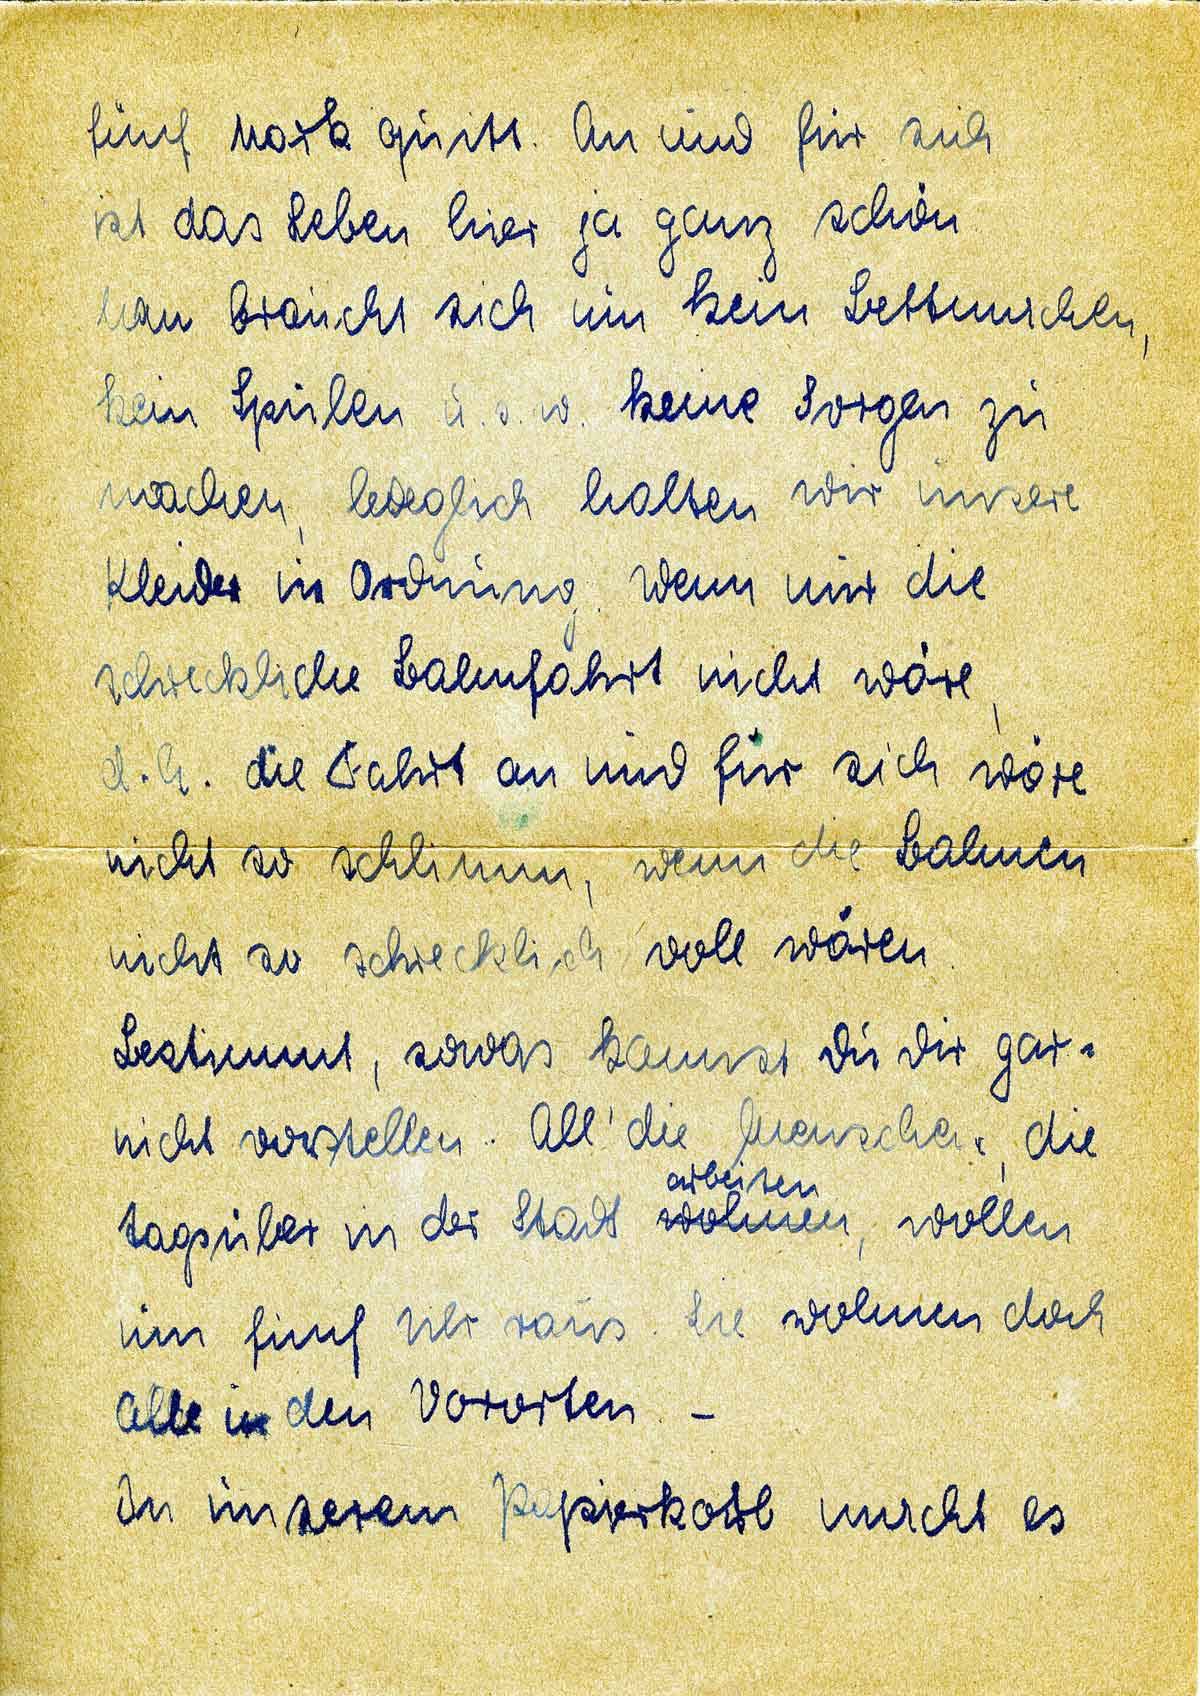 fünf Mark quitt. An und für sich
ist das Leben hier ja ganz schön
man braucht sich um kein Bettmachen,
kein Spülen u.s.w. keine Sorgen zu
machen, lediglich halten wir unsere
Kleider in Ordnung. Wenn nur die
schreckliche Bahnfahrt nicht wäre,
d.h. die Fahrt an und für sich wäre
nicht so schlimm, wenn die Bahnen
nicht so schrecklich voll wären.
Bestimmt, sowas kannst Du Dir gar-
nicht vorstellen. All' die Menschen, die
arbeiten
tagsüber in der Stadt wohnen, wollen
um fünf Uhr raus. Sie wohnen doch
Alle in den Vororten. –
In unserem Papierkorb macht es